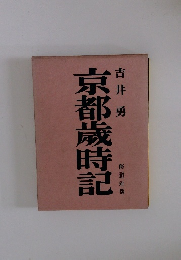 吉井勇
京都歳時記